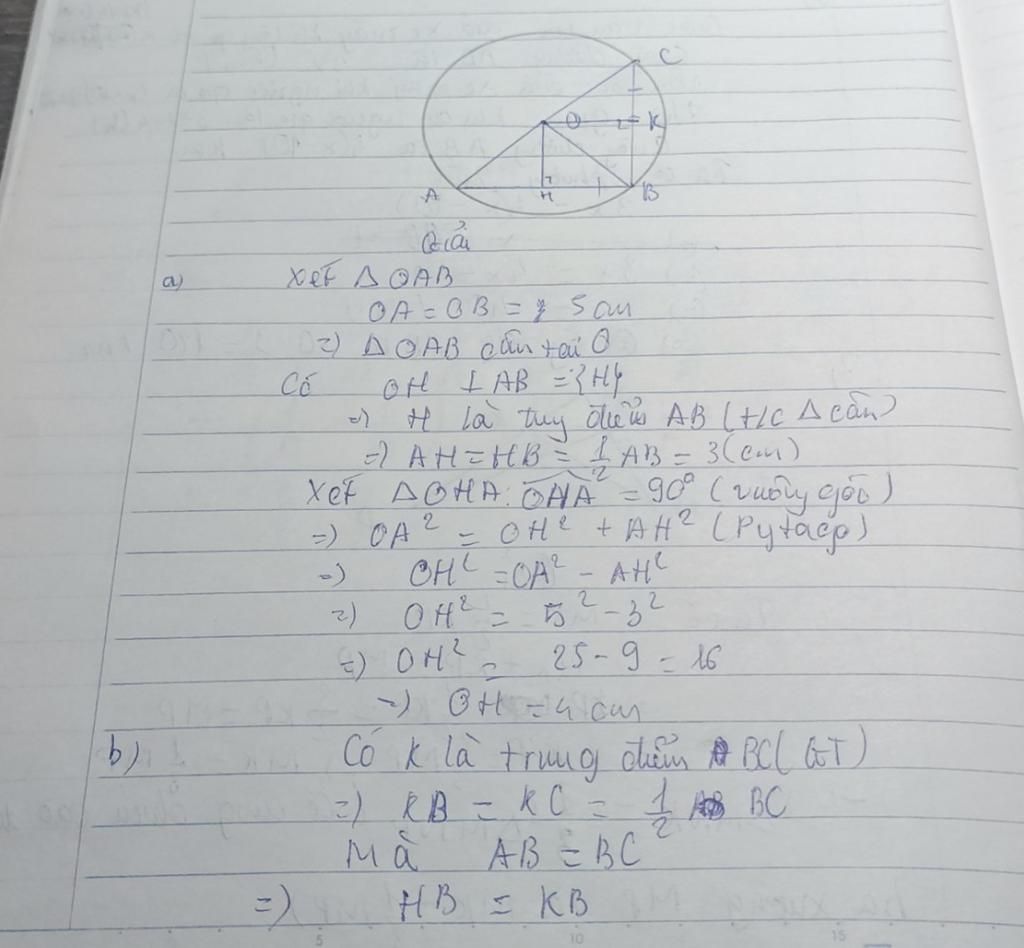 C
O
K
A
H
B
Giải
a) Xét Δ OAB
OA = OB = 5 cm
=) Δ OAB cân tại O
Có OH ⊥ AB = {H}
=) H là tug điểm AB (t/c Δ cân)
=) AH = HB = 1/2 AB = 3 (cm)
Xét Δ OHA: OHA = 90° (vuông góc)
=) OA² = OH² + AH² (Pytago)
=) OH² = OA² - AH²
=) OH² = 5² - 3²
=) OH² = 25 - 9 = 16
=) OH = 4 cm
b) Có K là trung điểm BC (GT)
=) KB = KC = 1/2 BC
Mà AB = BC
=) HB = KB
5 10 15